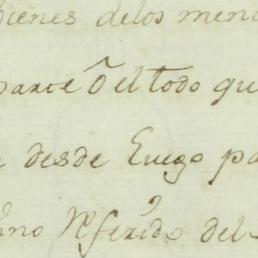 bienes delos meno
parte ō el todo qu
desde Luego pa
no Rẽferido del